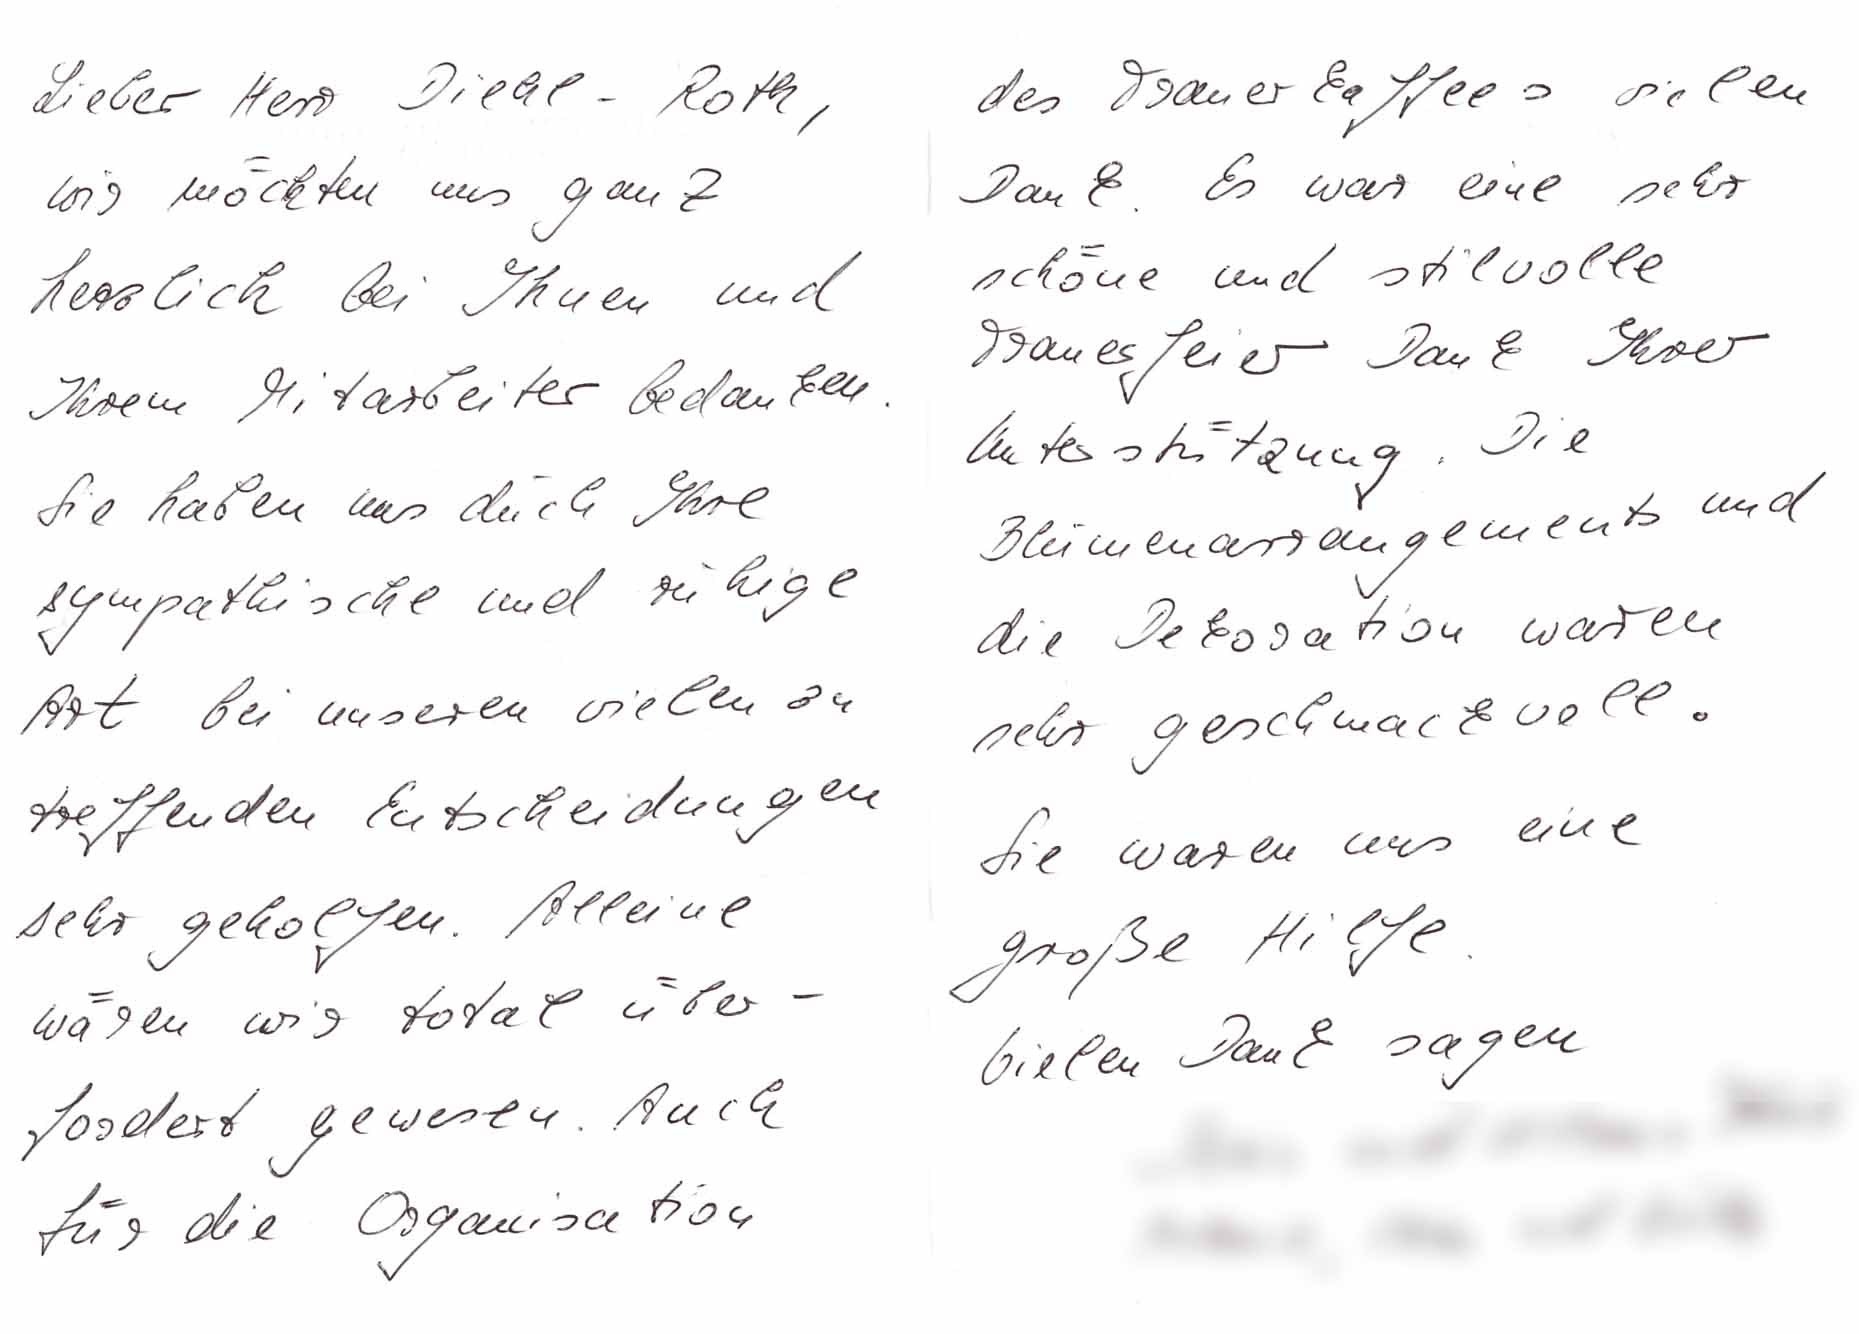 Lieber Herr Diehl - Roth,
wir möchten uns ganz
herzlich bei Ihnen und
Ihrem Mitarbeiter bedanken.
Sie haben uns duch Ihre
sympathische und ruhige
Art bei unseren vielen zu
treffenden Entscheidungen
sehr geholfen. Alleine
wären wir total über-
fordert gewesen. Auch
für die Organisation
des Trauerkaffees vielen
Dank. Es war eine sehr
schöne und stilvolle
Trauerfeier Dank Ihrer
Unterstützung. Die
Blumenarrangements und
die Dekoration waren
sehr geschmackvoll.
Sie waren uns eine
große Hilfe.
Vielen Dank sagen